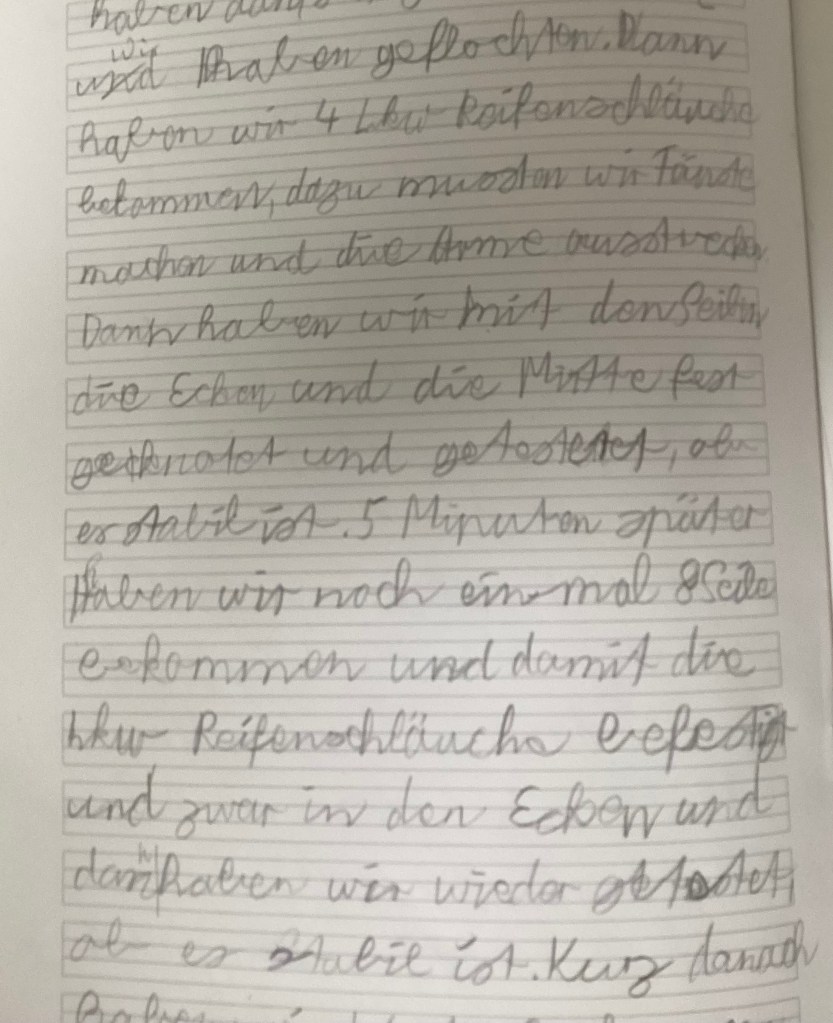 haben
wir
und haben geflochten. Dann
haben wir 4 Lkw Reifenschläuche
bekommen, dazu mussten wir
machen und die Arme ausstrecken
Dann haben wir mit den Seilen
die Ecken und die Mitte fest
geknotet und getestet, ob
er stabil ist. 5 Minuten später
Haben wir noch ein mal 8 Seile
bekommen und damit die
Lkw Reifenschläuche befestigt
und zwar in den Ecken und
dann haben wir wieder getestet,
ob es stabil ist. Kurz danach